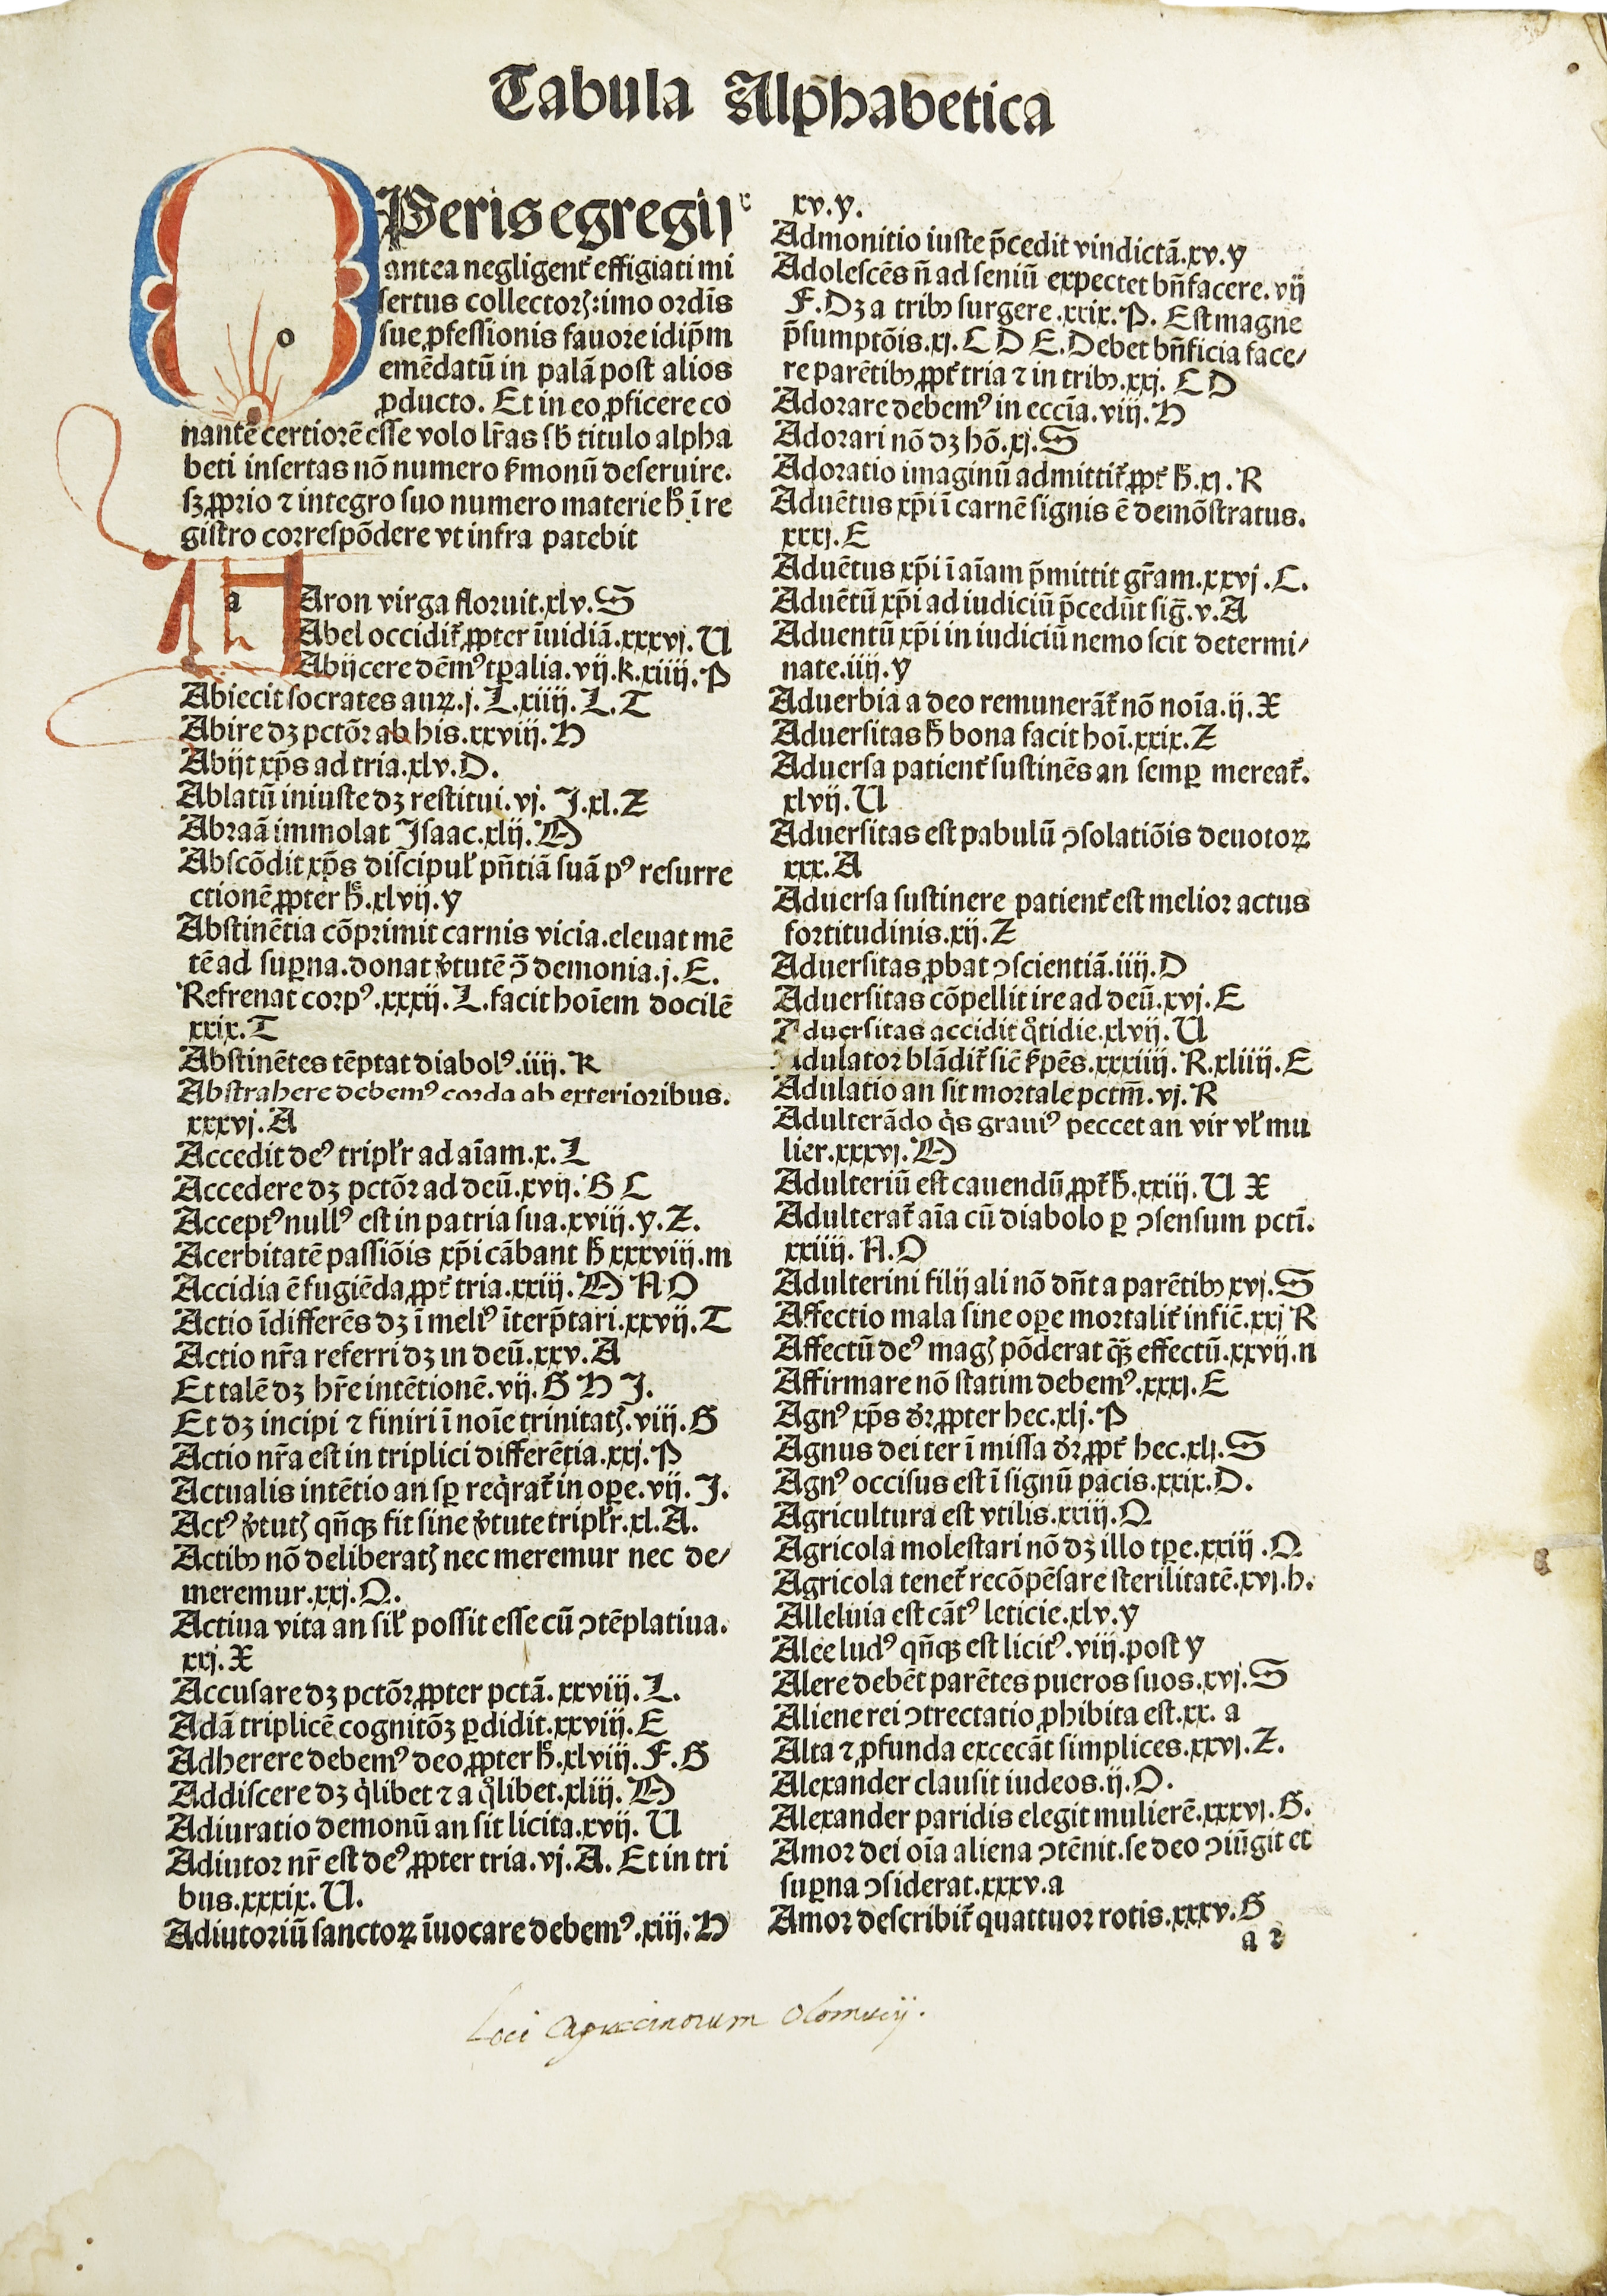 Tabula Alphabetica
OPeris egregij
antea negligent̃ effigiati mi
sertus collectoꝝ: imo ordīs
sue ꝓfessionis fauore idip̄m
emēdatū in palā post alios
ꝓducto. Et in eo ꝓficere co
nantē certiorē esse volo lr̄as sb̄ titulo alpha
beti insertas nō numero ẜmonū deseruire.
sꝫ ꝓprio ⁊ integro suo numero materie hͦ ī re
gistro correspōdere vt infra patebit
o
a
Aaron virga floruit.xlv.S
Abel occidit̃ ꝓpter īuidiā.xxxvj.U
Abijcere dēmꝰ tꝑalia.vij.k.xiiij.P
Abiecit socrates auꝝ.j.L.xiiij.L.T
Abire dꝫ pctōꝛ ab his.xxviij.H
Abijt xp̄s ad tria.xlv.D.
Ablatū iniuste dꝫ restitui.vj.J.xl.Z
Abraā immolat Isaac.xlij.M
Abscōdit xp̄s discipul̕ pn̄tiā suā pꝰ resurre
ctionē ꝓpter hͦ.xlvij.y
Abstinētia cōprimit carnis vicia.eleuat mē
tē ad suꝑna.donat v̕tutē ↄ̄ demonia.j.E.
Refrenat corpꝰ.xxxij.L.facit hoīem docilē
xxix.T
Abstinētes tēptat diabolꝰ.iiij.R
Abstrahere debemꝰ corda ab exterioribus.
xxxvj.A
Accedit deꝰ tripl̕r ad aīam.x.L
Accedere dꝫ pctōꝛ ad deū.xvij.B C
Acceptꝰ nullꝰ est in patria sua.xviij.y.Z.
Acerbitatē passiōis xp̄i cābant hͦ xxxviij.m
Accidia ē fugiēda ꝓpt̃ tria.xxiij.M N O
Actio īdifferēs dꝫ ī meliꝰ īterp̄tari.xxvij.T
Actio nr̄a referri dꝫ in deū.xxv.A
Et talē dꝫ hr̄e intētionē.vij.G H J.
Et dꝫ incipi ⁊ finiri ī noīe trinitatꝭ.viij.G
Actio nr̄a est in triplici differētia.xxj.P
Actualis intētio an sꝑ reqͥrat̃ in oꝑe.vij.J.
Actꝰ v̕tutꝭ qn̄qꝫ fit sine v̕tute tripl̕r.xl.A.
Actibꝫ nō deliberatꝭ nec meremur nec de/
meremur.xxj.Q.
Actiua vita an sil̕ possit esse cū ↄtēplatiua.
xxj.X
Accusare dꝫ pctōꝛ ꝓpter pctā.xxviij.L.
Adā triplicē cognitōꝫ ꝑdidit.xxviij.E
Adherere debemꝰ deo ꝓpter hͦ.xlviij.F.G
Addiscere dꝫ qͥlibet ⁊ a qͦlibet.xliij.M
Adiuratio demonū an sit licita.xvij.U
Adiutor nr̄ est deꝰ ꝓpter tria.vj.A. Et in tri
bus.xxxix.U.
Adiutoriū sanctoꝝ īuocare debemꝰ.xiij.H
xv.y.
Admonitio iuste p̄cedit vindictā.xv.y
Adolescēs n̄ ad seniū expectet bn̄facere.vij
F.Dꝫ a tribꝫ surgere.xxix.P. Est magne
p̄sumptōis.xj.C D E.Debet bn̄ficia face/
re parētibꝫ ꝓpt̃ tria ⁊ in tribꝫ.xxj. C D
Adorare debemꝰ in eccīa.viij.H
Adorari nō dꝫ hō.xj.S
Adoratio imaginū admittit̃ ꝓpt̃ hͦ.xj.R
Aduētus xp̄i ī carnē signis ē demōstratus.
xxxj.E
Aduētus xp̄i ī aīam p̄mittit gr̄am.xxvj.C.
Aduētū xp̄i ad iudiciū p̄cedūt siḡ.v.A
Aduentū xp̄i in iudiciū nemo scit determi/
nate.iiij.y
Aduerbia a deo remunerāt̃ nō noīa.ij.X
Aduersitas hͦ bona facit hoī.xxix.Z
Aduersa patient̃ sustinēs an semꝑ mereat̃.
xlvij.U
Aduersitas est pabulū ↄsolatiōis deuotoꝝ
xxx.A
Aduersa sustinere patient̃ est melior actus
fortitudinis.xij.Z
Aduersitas ꝓbat ↄscientiā.iiij.D
Aduersitas cōpellit ire ad deū.xvj.E
Aduersitas accidit qͦtidie.xlvij.U
Adulator blādit̃ sic̄ ẜpēs.xxxiiij.R.xliiij.E
Adulatio an sit mortale pctm̄.vj.R
Adulterādo qͥs grauiꝰ peccet an vir vl̕ mu
lier.xxxvj.M
Adulteriū est cauendū ꝓpt̃ hͦ.xxiij.U X
Adulterat̃ aīa cū diabolo ꝑ ↄsensum pctī.
xxiiij.N.O
Adulterini filij ali nō dn̄t a parētibꝫ xvj.S
Affectio mala sine oꝑe mortalit̃ infic̄.xxj R
Affectū deꝰ magꝭ pōderat qꝫ̄ effectū.xxvij.n
Affirmare nō statim debemꝰ.xxxj.E
Agnꝰ xp̄s dr̄ ꝓpter hec.xlj.P
Agnus dei ter ī missa dr̄ ꝓpt̃ hec.xlj.S
Agnꝰ occisus est ī signū pacis.xxix.D.
Agricultura est vtilis.xxiij.Q
Agricola molestari nō dꝫ illo tꝑe.xxiij.Q
Agricola tenet̃ recōpēsare sterilitatē.xvj.h.
Alleluia est cātꝰ leticie.xlv.y
Alee ludꝰ qn̄qꝫ est licitꝰ.viij.post y
Alere debēt parētes pueros suos.xvj.S
Aliene rei ↄtrectatio ꝓhibita est.xx. a
Alta ⁊ ꝓfunda excecāt simplices.xxvj.Z.
Alexander clausit iudeos.ij.O.
Alexander paridis elegit mulierē.xxxvj.G.
Amor dei oīa aliena ↄtēnit.se deo ↄiūgit et
suꝑna ↄsiderat.xxxv.a
Amor describit̃ quattuor rotis.xxxv.G
a 2
Loci Capuccinorum Olomucij.